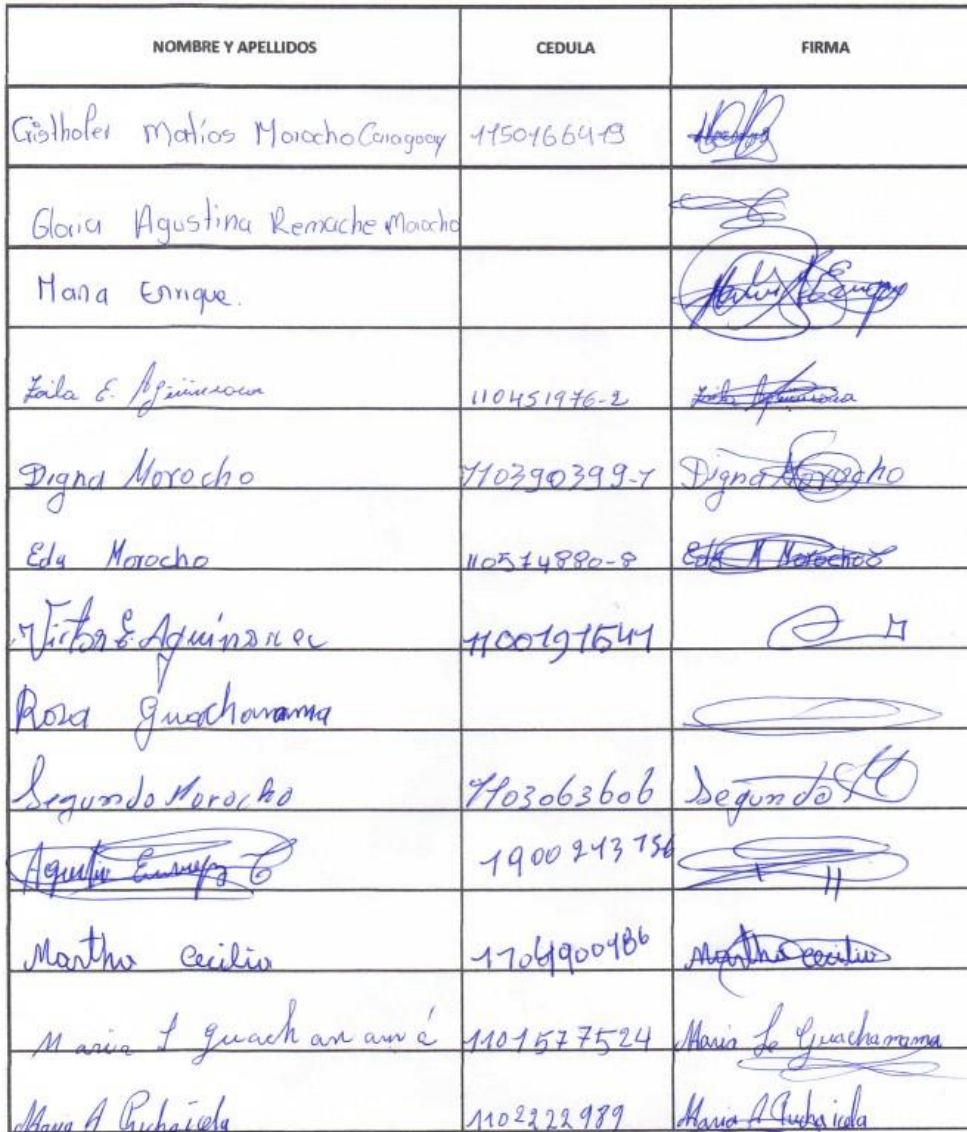 NOMBRE Y APELLIDOS CEDULA FIRMA
Cristhofer Matías Morocho Caraguay 1150166419
Gloria Agustina Remache Morocho
Maria Enrique.
Zoila E. 110451976-2
Digna Morocho 110390399-1 Digna Morocho
Eda Morocho 110574880-8 Eda M Morocho
Victor E. Aguinsaca 1100191541
Rosa Guachanama
Segundo Morocho 1103063606 Segundo M
Agustin 1900243156
Martha Cecilia Martha Cecilia
Maria L Guachanamá 1101577524 Maria L Guachanama
Maria A Puchaicela 1102222989 Maria A Puchaicela